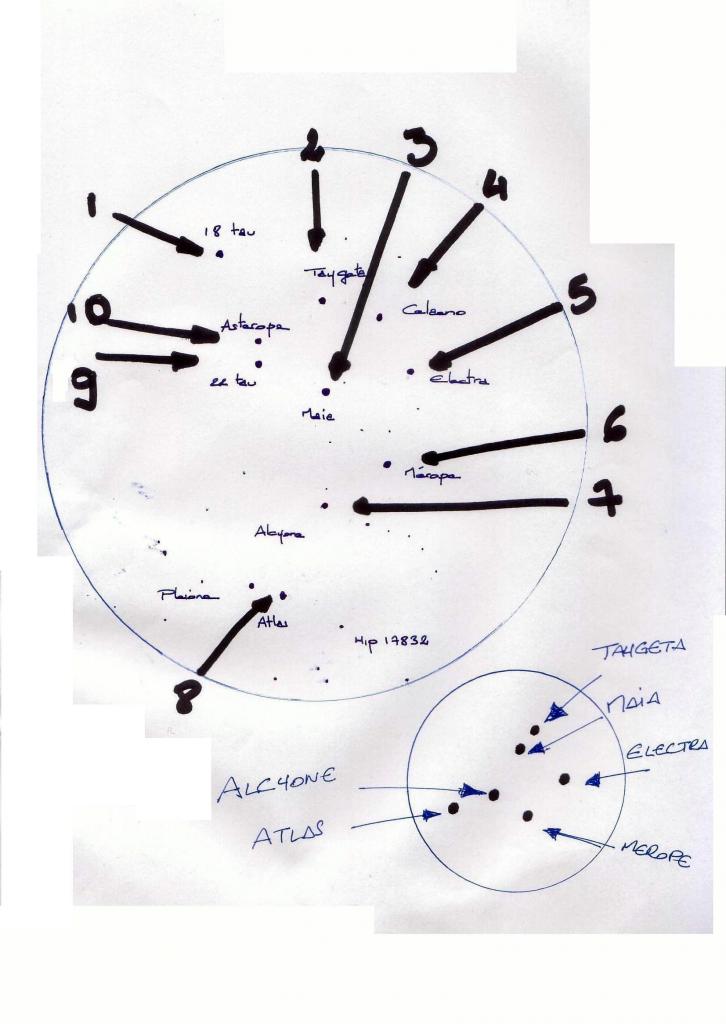 2
3
4
1
18 tau
Taygeta
Celaeno
5
10
Asterope
22 tau
Electra
9
Maie
6
Mérope
7
Alcyone
Pleione
Atlas
Hip 17832
8
TAYGETA
MAIA
ELECTRA
ALCYONE
ATLAS
MEROPE